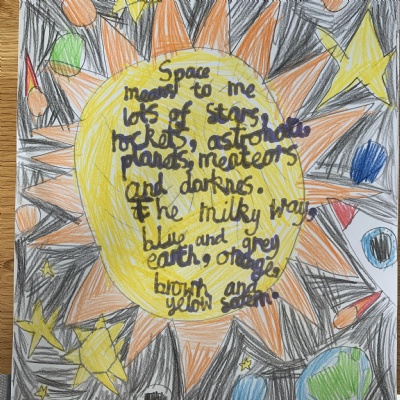 Space
means to me
lots of stars,
rockets, astronats,
planets, meteors
and darknes.
The milky way,
blue and grey
earth, orange,
brown and
yelow satern.